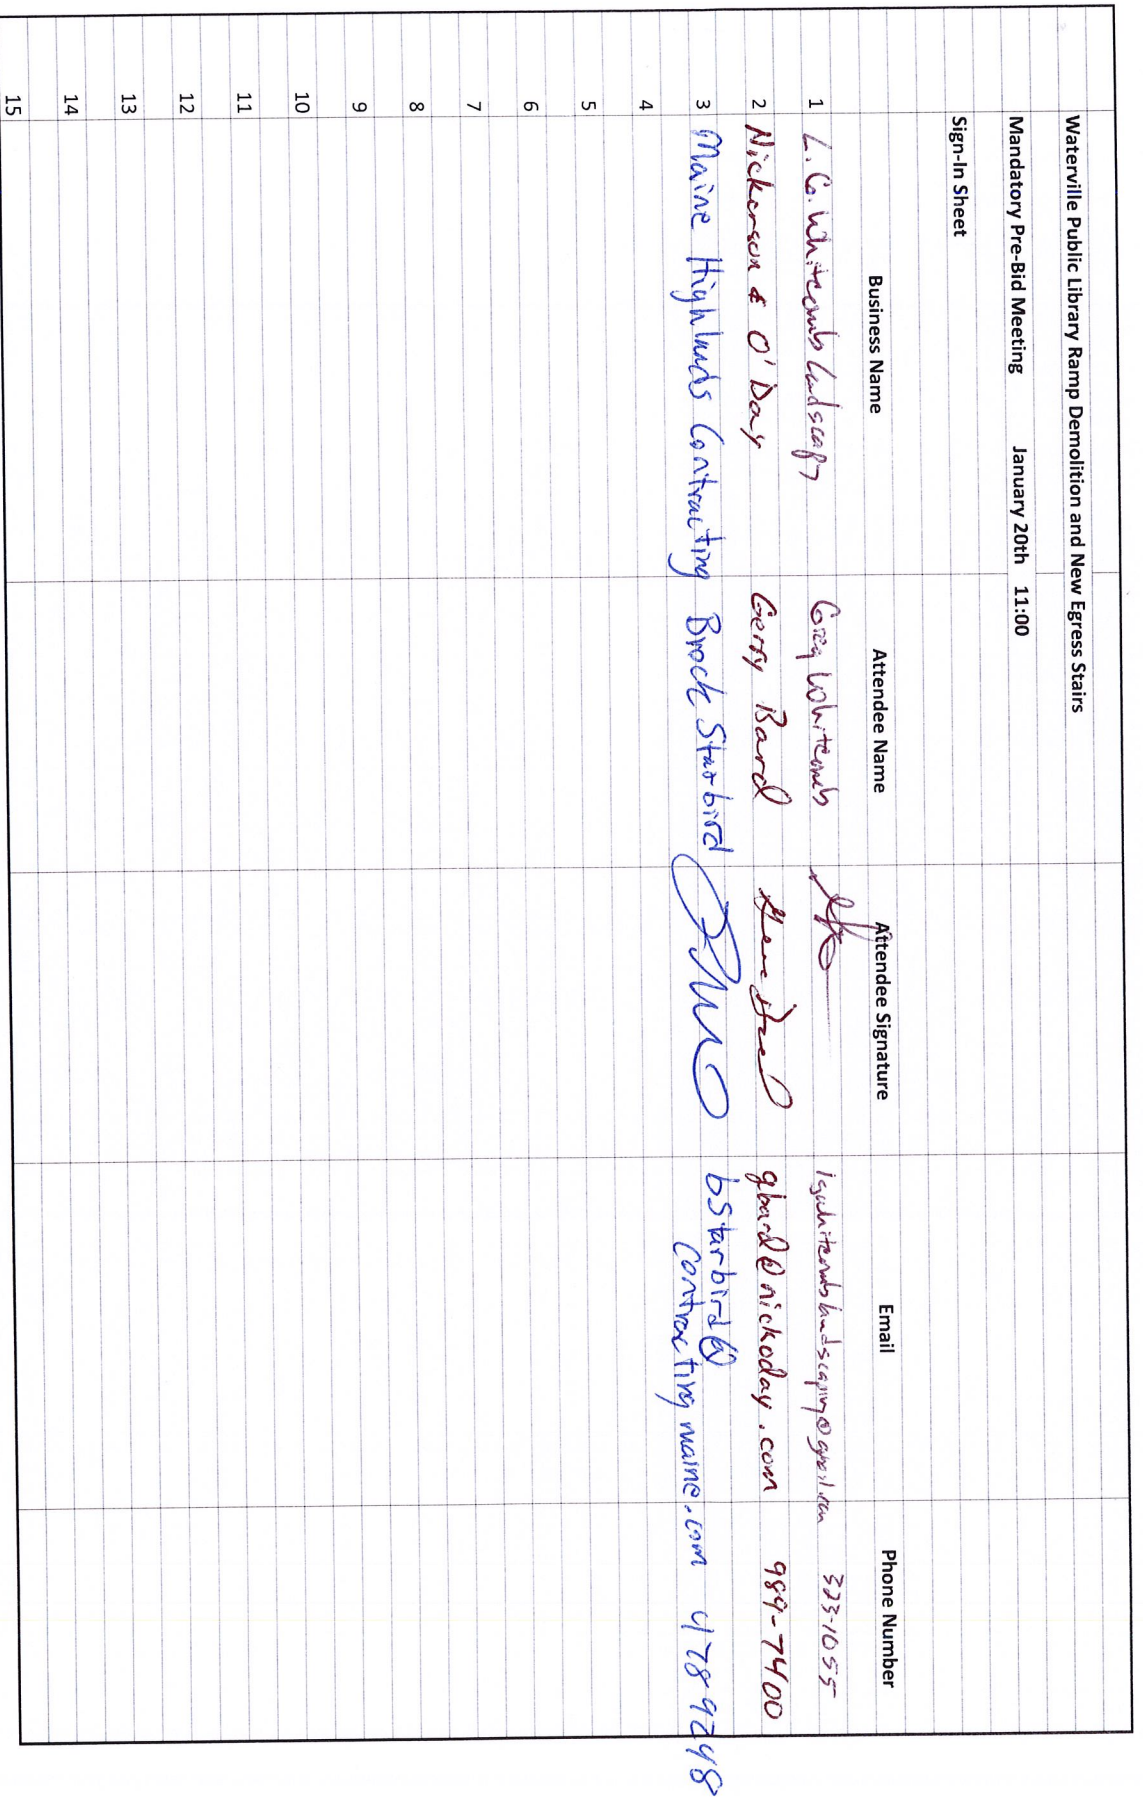 Waterville Public Library Ramp Demolition and New Egress Stairs
Mandatory Pre-Bid Meeting January 20th 11:00
Sign-In Sheet
Business Name Attendee Name Attendee Signature Email Phone Number
1 Whitcomb Whitcomb 323-1055
2 Nickerson & O'Day Gerry Bard gbard@nickoday.com 989-7400
3 Maine Highlands Contracting Brock Starbird bstarbird@
contractingmaine.com 478 9248
4
5
6
7
8
9
10
11
12
13
14
15